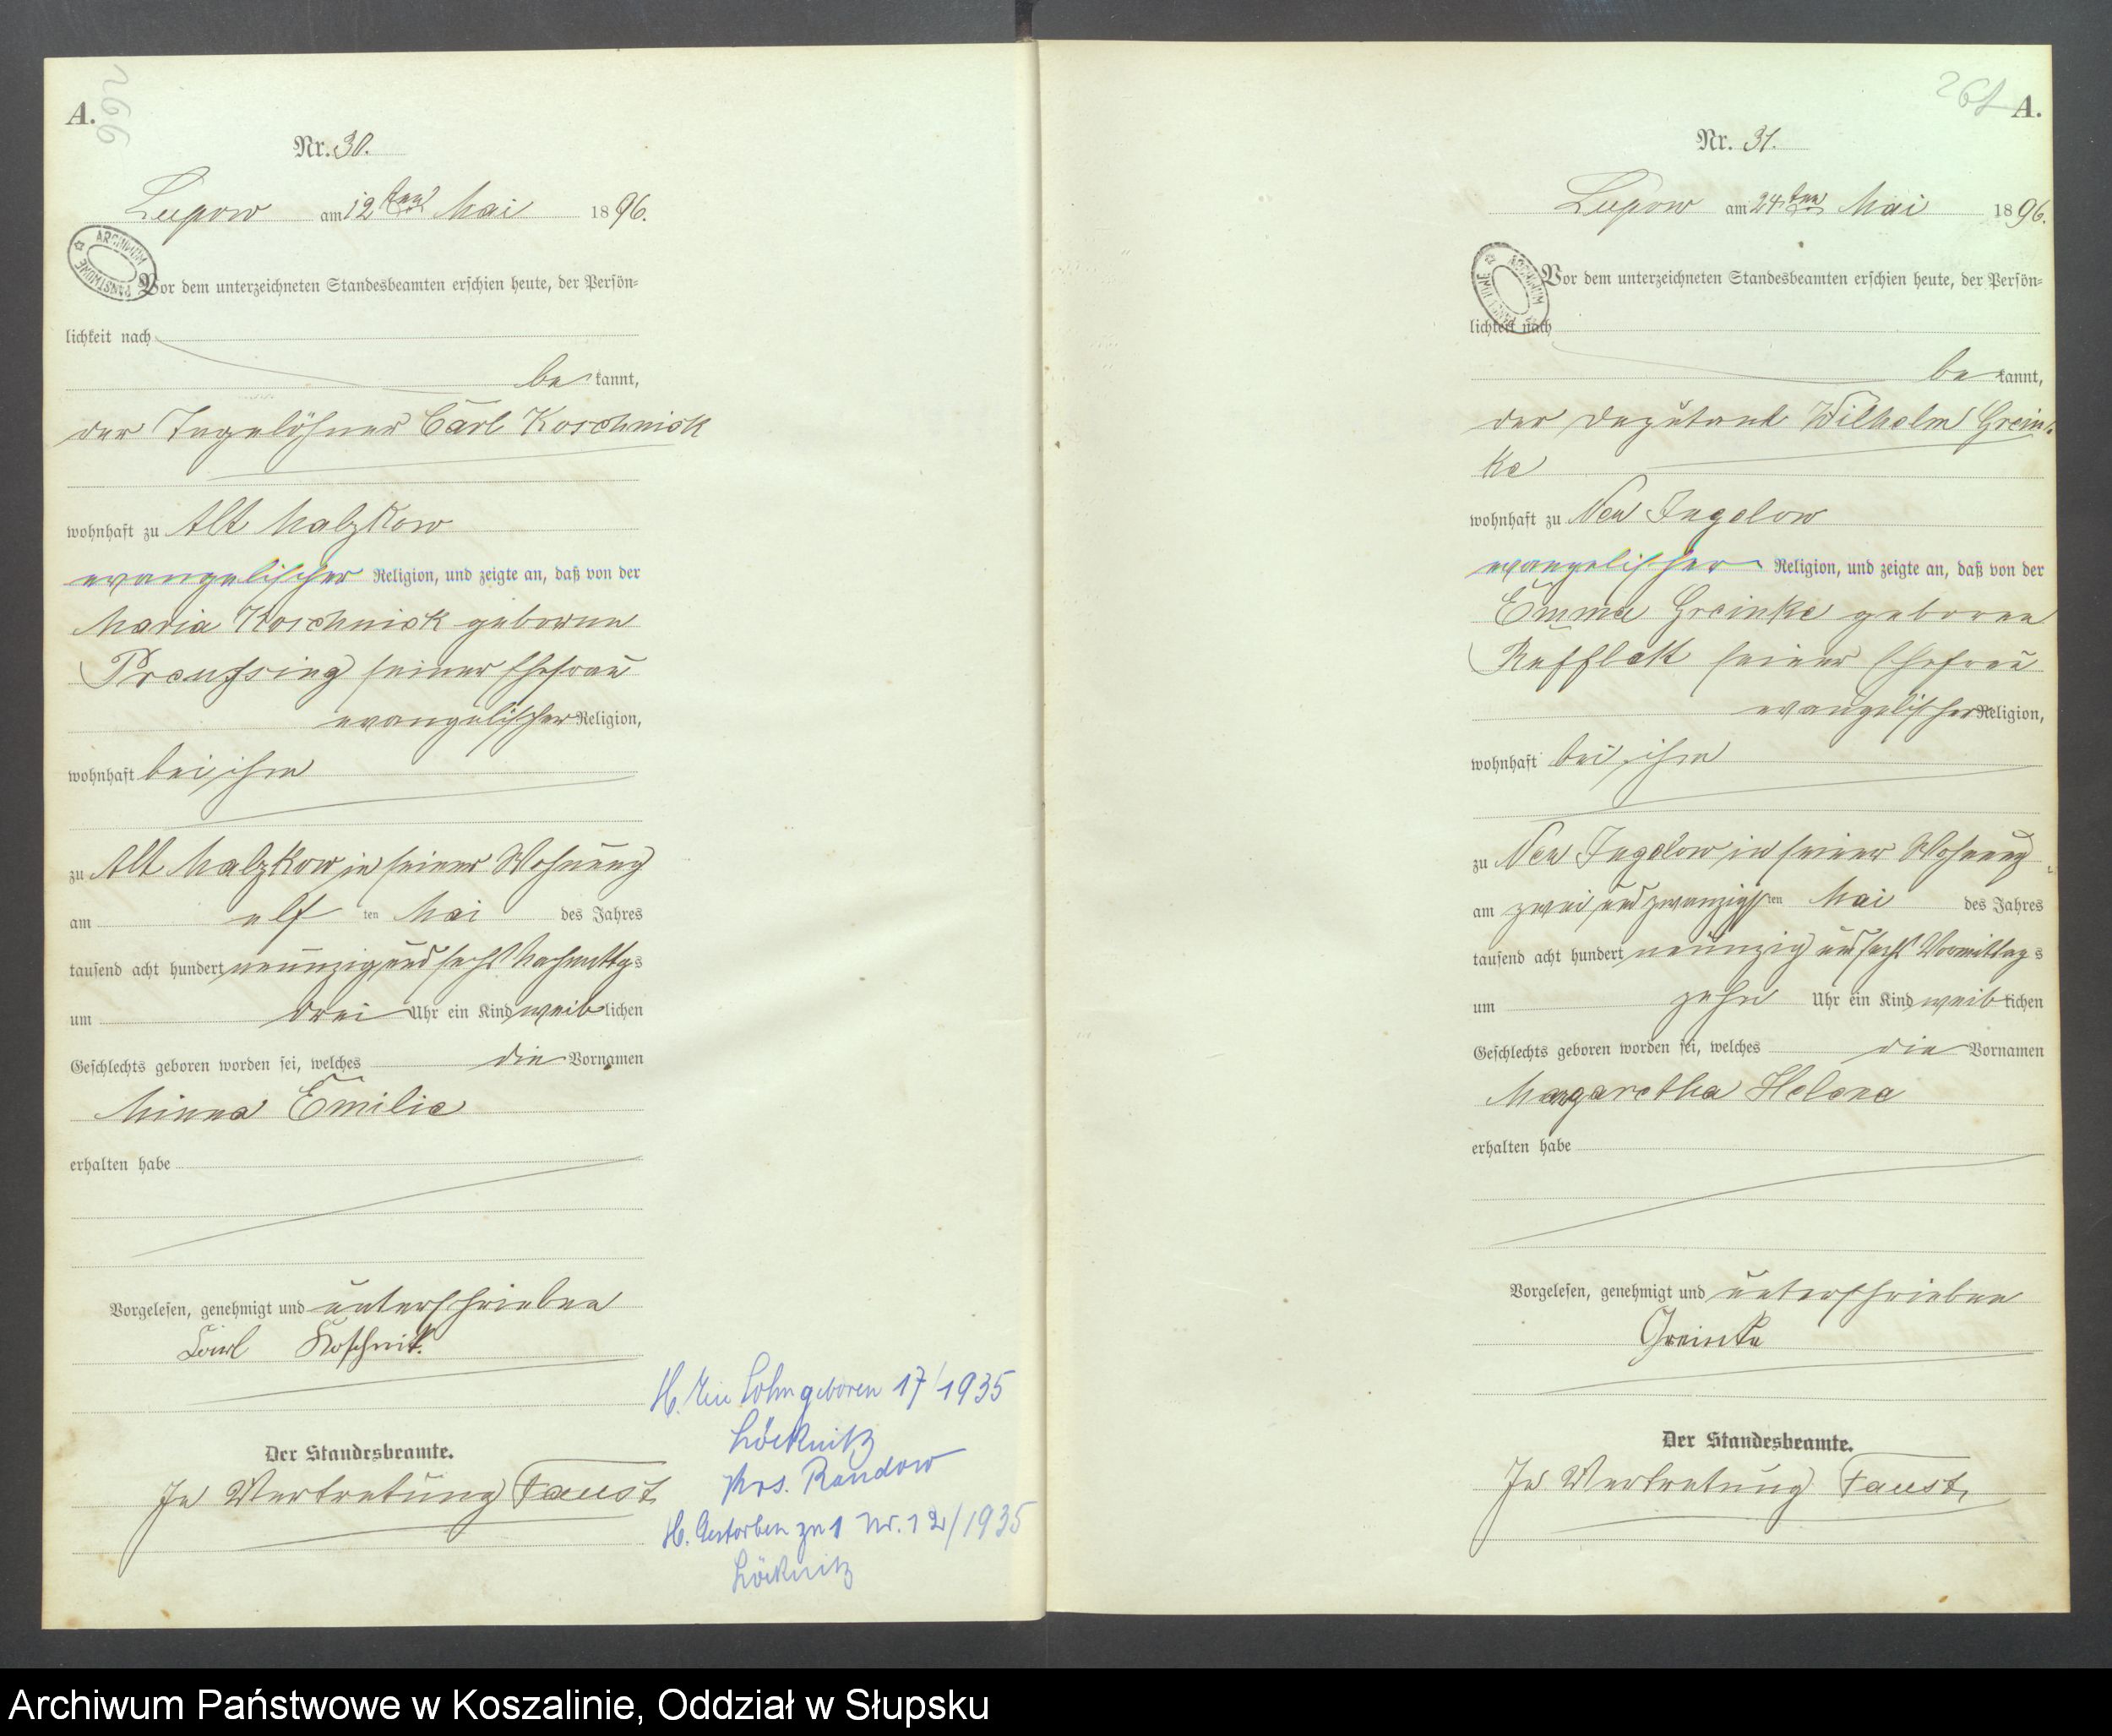 A.
266
Nr. 30.
Lupow am 12ten Mai 1896.
ARCHIWUM PAŃSTWOWE
Vor dem unterzeichneten Standesbeamten erschien heute, der Persön-
lichkeit nach
be kannt,
der Tagelöhner Carl Koschnick
wohnhaft zu Alt Malzkow
evangelischer Religion, und zeigte an, daß von der
Maria Koschnick geborene
Preussing seiner Ehefrau
evangelischer Religion,
wohnhaft bei ihm
zu Alt Malzkow in seiner Wohnung
am elf ten Mai des Jahres
tausend acht hundert neunzig und sechs Nachmittags
um drei Uhr ein Kind weiblichen
Geschlechts geboren worden sei, welches die Vornamen
Minna Emilie
erhalten habe
Vorgelesen, genehmigt und unterschrieben
Carl Koschnik.
Der Standesbeamte.
In Vertretung Faust
H. Ein Sohn geboren 17/1935
Löcknitz
Krs. Randow
H. Gestorben zu 1 Nr. 12/1935
Löcknitz
267
A.
Nr. 31.
Lupow am 24ten Mai 1896.
ARCHIWUM PAŃSTWOWE
Vor dem unterzeichneten Standesbeamten erschien heute, der Persön-
lichkeit nach
be kannt,
der Deputant Wilhelm Grein-
ke
wohnhaft zu Neu Jugelow
evangelischer Religion, und zeigte an, daß von der
Emma Greinke geboren
seiner Ehefrau
evangelischer Religion,
wohnhaft bei ihm
zu Neu Jugelow in seiner Wohnung
am zwei und zwanzigsten Mai des Jahres
tausend acht hundert neunzig und sechs Vormittags
um zehn Uhr ein Kind weiblichen
Geschlechts geboren worden sei, welches die Vornamen
Margaretha Helene
erhalten habe
Vorgelesen, genehmigt und unterschrieben
Greinke
Der Standesbeamte.
In Vertretung Faust
Archiwum Państwowe w Koszalinie, Oddział w Słupsku